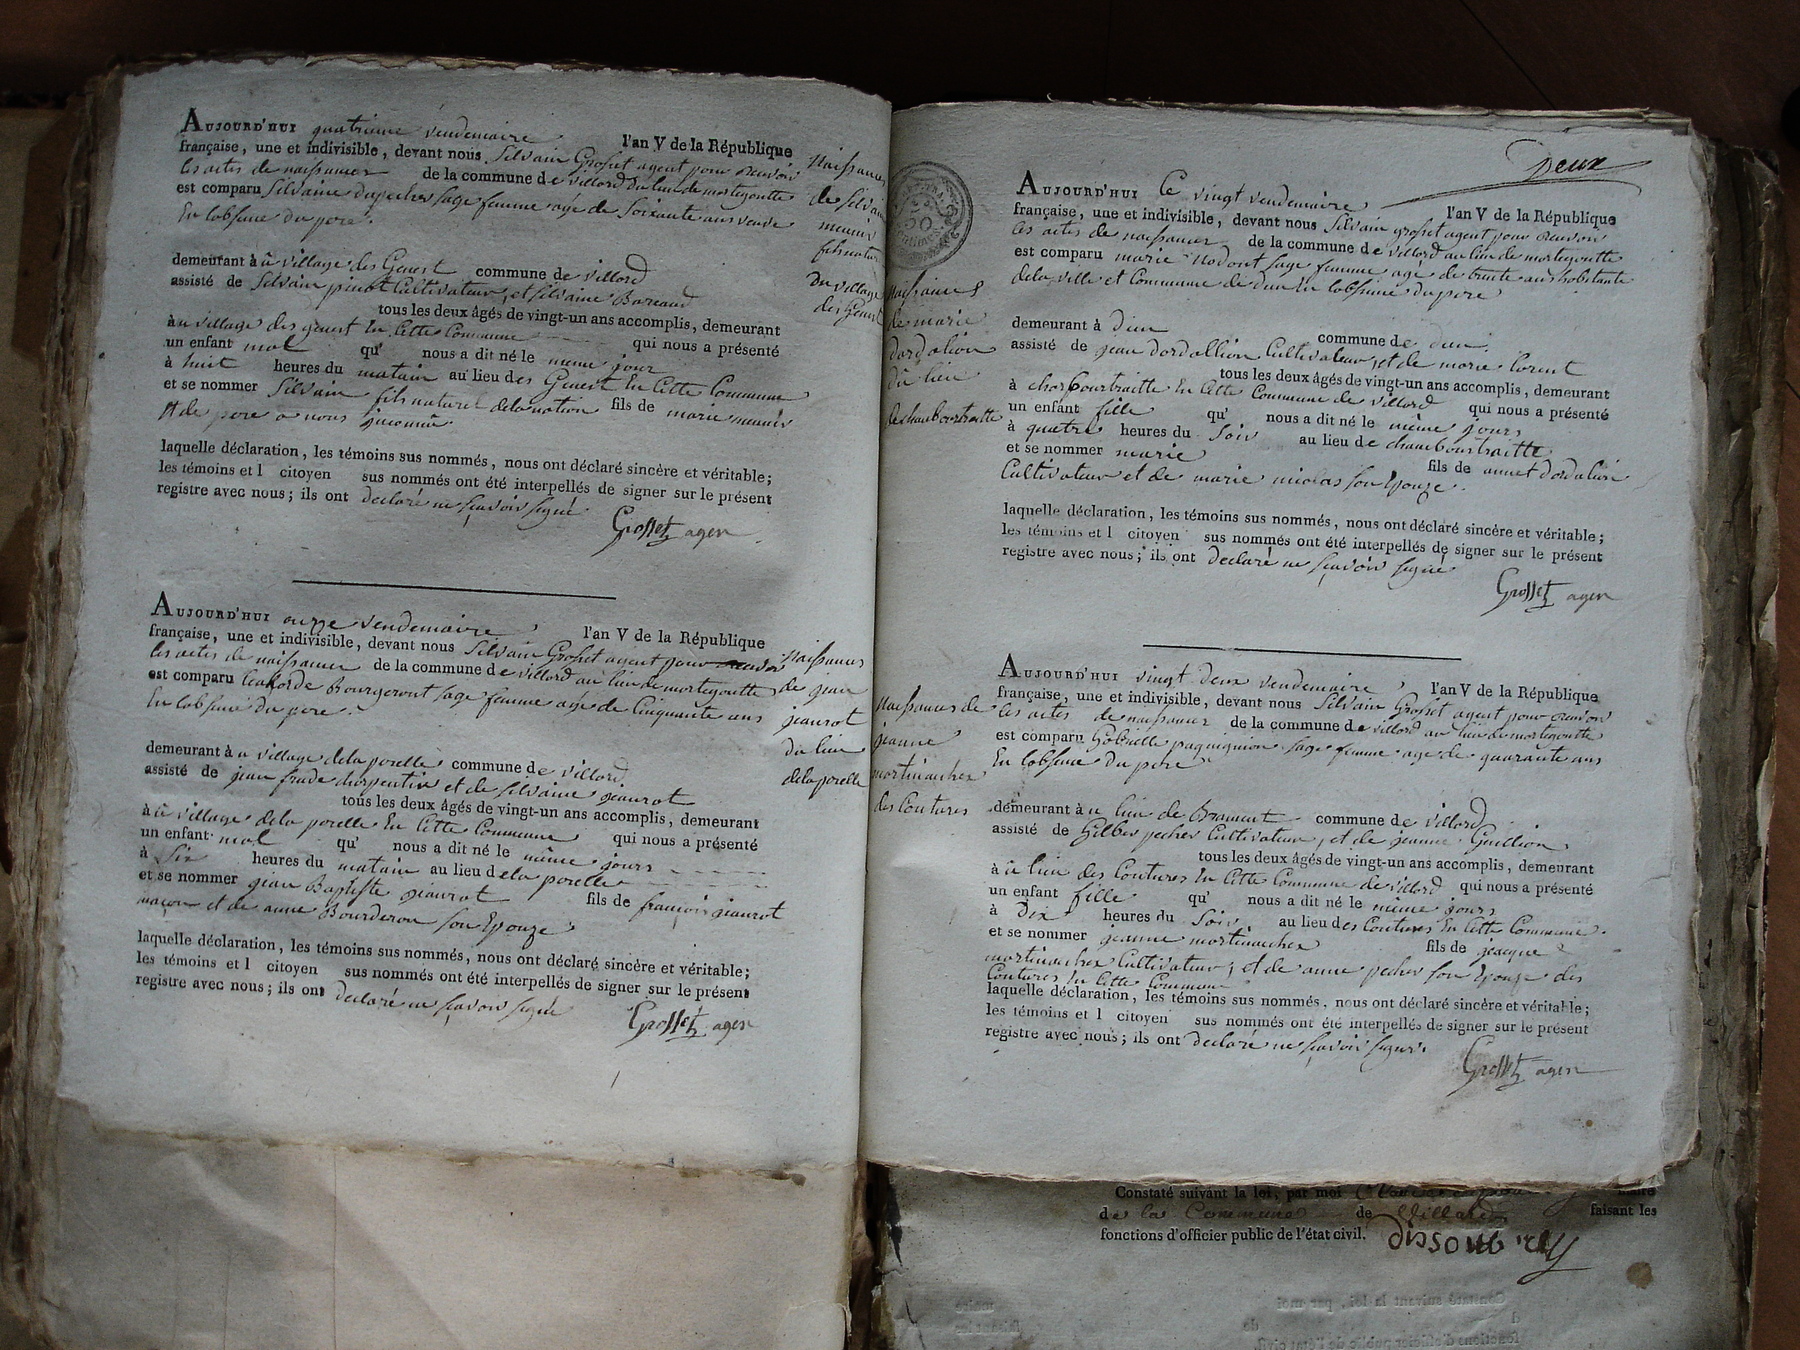 AUJOURD'HUI quatrieme vendemaire l'an V de la République
française, une et indivisible, devant nous Silvain Grosset agent pour recevoir
les actes de naissances de la commune de villard du lieu de mortegoutte
est comparu Silvaine Dupeches sage femme agé de soixante ans veuve
En lobsence du pere
demeurant à u village des Genest commune de villard
assisté de Silvain pinot Cultivateur, et silvaine Bareaud
tous les deux âgés de vingt-un ans accomplis, demeurant
à u village des genest En Cette Commune qui nous a présenté
un enfant mal qu' nous a dit né le meme jour
à huit heures du matain au lieu des Genest En Cette Commune
et se nommer Silvain fils naturel dela nation fils de marie meunix
et de pere a nous inconnu
laquelle déclaration, les témoins sus nommés, nous ont déclaré sincère et véritable;
les témoins et l citoyen sus nommés ont été interpellés de signer sur le présent
registre avec nous; ils ont declaré ne sçavoir signé
Grosset agen
Naissances
de silvain
meunix
fils naturel
Du village
des Genest
AUJOURD'HUI onzze vendemaire l'an V de la République
française, une et indivisible, devant nous Silvain Grosset agent pour recevoir
les actes de naissances de la commune de villard au lieu de mortegoutte
est comparu Bourgeront sage femme agé de Cinquante ans
En lobsence du pere
demeurant à u village dela porelle commune de villard
assisté de jean frade charpentix et de silvaine jeanrot
tous les deux âgés de vingt-un ans accomplis, demeurant
à u village dela porelle En Cette Commune qui nous a présenté
un enfant mal qu' nous a dit né le même jours
à six heures du matain au lieu dela porelle
et se nommer jean Baptiste jeanrot fils de françois jeanrot
maçon et de anne Bourderon son Epouze
laquelle déclaration, les témoins sus nommés, nous ont déclaré sincère et véritable;
les témoins et l citoyen sus nommés ont été interpellés de signer sur le présent
registre avec nous; ils ont declaré ne sçavoir signé
Grosset agen
Naissances
de jean
jeanrot
du lieu
dela porelle
Deux
AUJOURD'HUI Ce vingt vendemaire l'an V de la République
française, une et indivisible, devant nous Silvain grosset agent pour recevoir
les actes de naissances de la commune de villard au lieu de mortegoutte
est comparu marie Nodont sage femme agé de trente ans habitante
dela ville et Commune de Dun En lobsence du pere
demeurant à Dun commune de dun
assisté de jean dordallion Cultivateur, et de marie lorent
tous les deux âgés de vingt-un ans accomplis, demeurant
à En Cette Commune de villard qui nous a présenté
un enfant fille qu' nous a dit né le même jours
à quatre heures du Soir au lieu de chambourtraitte
et se nommer marie fils de annet dordalion
Cultivateur et de marie nicolas son Epouze
laquelle déclaration, les témoins sus nommés, nous ont déclaré sincère et véritable;
les témoins et l citoyen sus nommés ont été interpellés de signer sur le présent
registre avec nous; ils ont declaré ne sçavoir signé
Grosset agen
Naissances
de marie
dordalion
du lieu
de chambourtraitte
AUJOURD'HUI vingt deux vendemaire l'an V de la République
française, une et indivisible, devant nous Silvain Grosset agent pour recevoir
les actes de naissances de la commune de villard au lieu de mortegoutte
est comparu Gabrielle paquignion sage femme age de quarante ans
En lobsence du pere
demeurant à u lieu de commune de villard
assisté de Gilber pecher Cultivateur, et de jeanne Guillion
tous les deux âgés de vingt-un ans accomplis, demeurant
à u lieu des Coutures En Cette Commune de villard qui nous a présenté
un enfant fille qu' nous a dit né le même jours
à Dix heures du Soir au lieu des Coutures En Cette Commune
et se nommer jeanne martinaichex fils de jeacque
martinaichex Cultivateur, et de anne pecher son Epouze des
Coutures En Cette Commune
laquelle déclaration, les témoins sus nommés, nous ont déclaré sincère et véritable;
les témoins et l citoyen sus nommés ont été interpellés de signer sur le présent
registre avec nous; ils ont declaré ne sçavoir signer
Grosset agen
Naissances de
jeanne
martinaichex
des Coutures
Constaté suivant la loi, par moi maire
de la Commune de Villard faisant les
fonctions d'officier public de l'état civil.